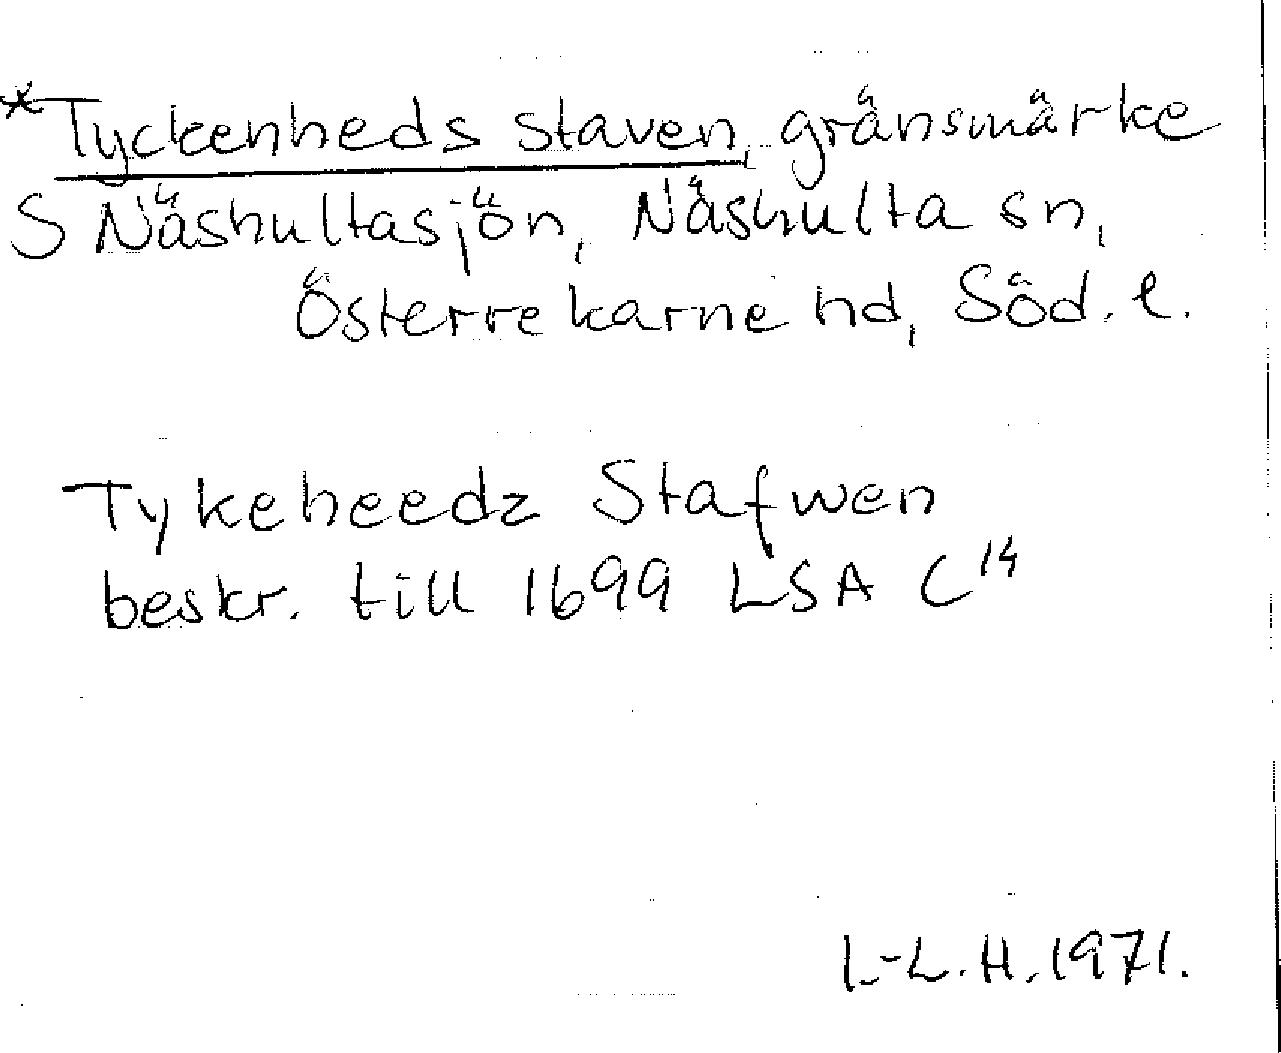 *Tyckenheds staven, gränsmärke
S Näshultasjön, Näshulta sn,
Österrekarne hd, Söd. l.
Tykeheedz Stafwen
beskr. till 1699 LSA C14
I.-L. H. 1971.